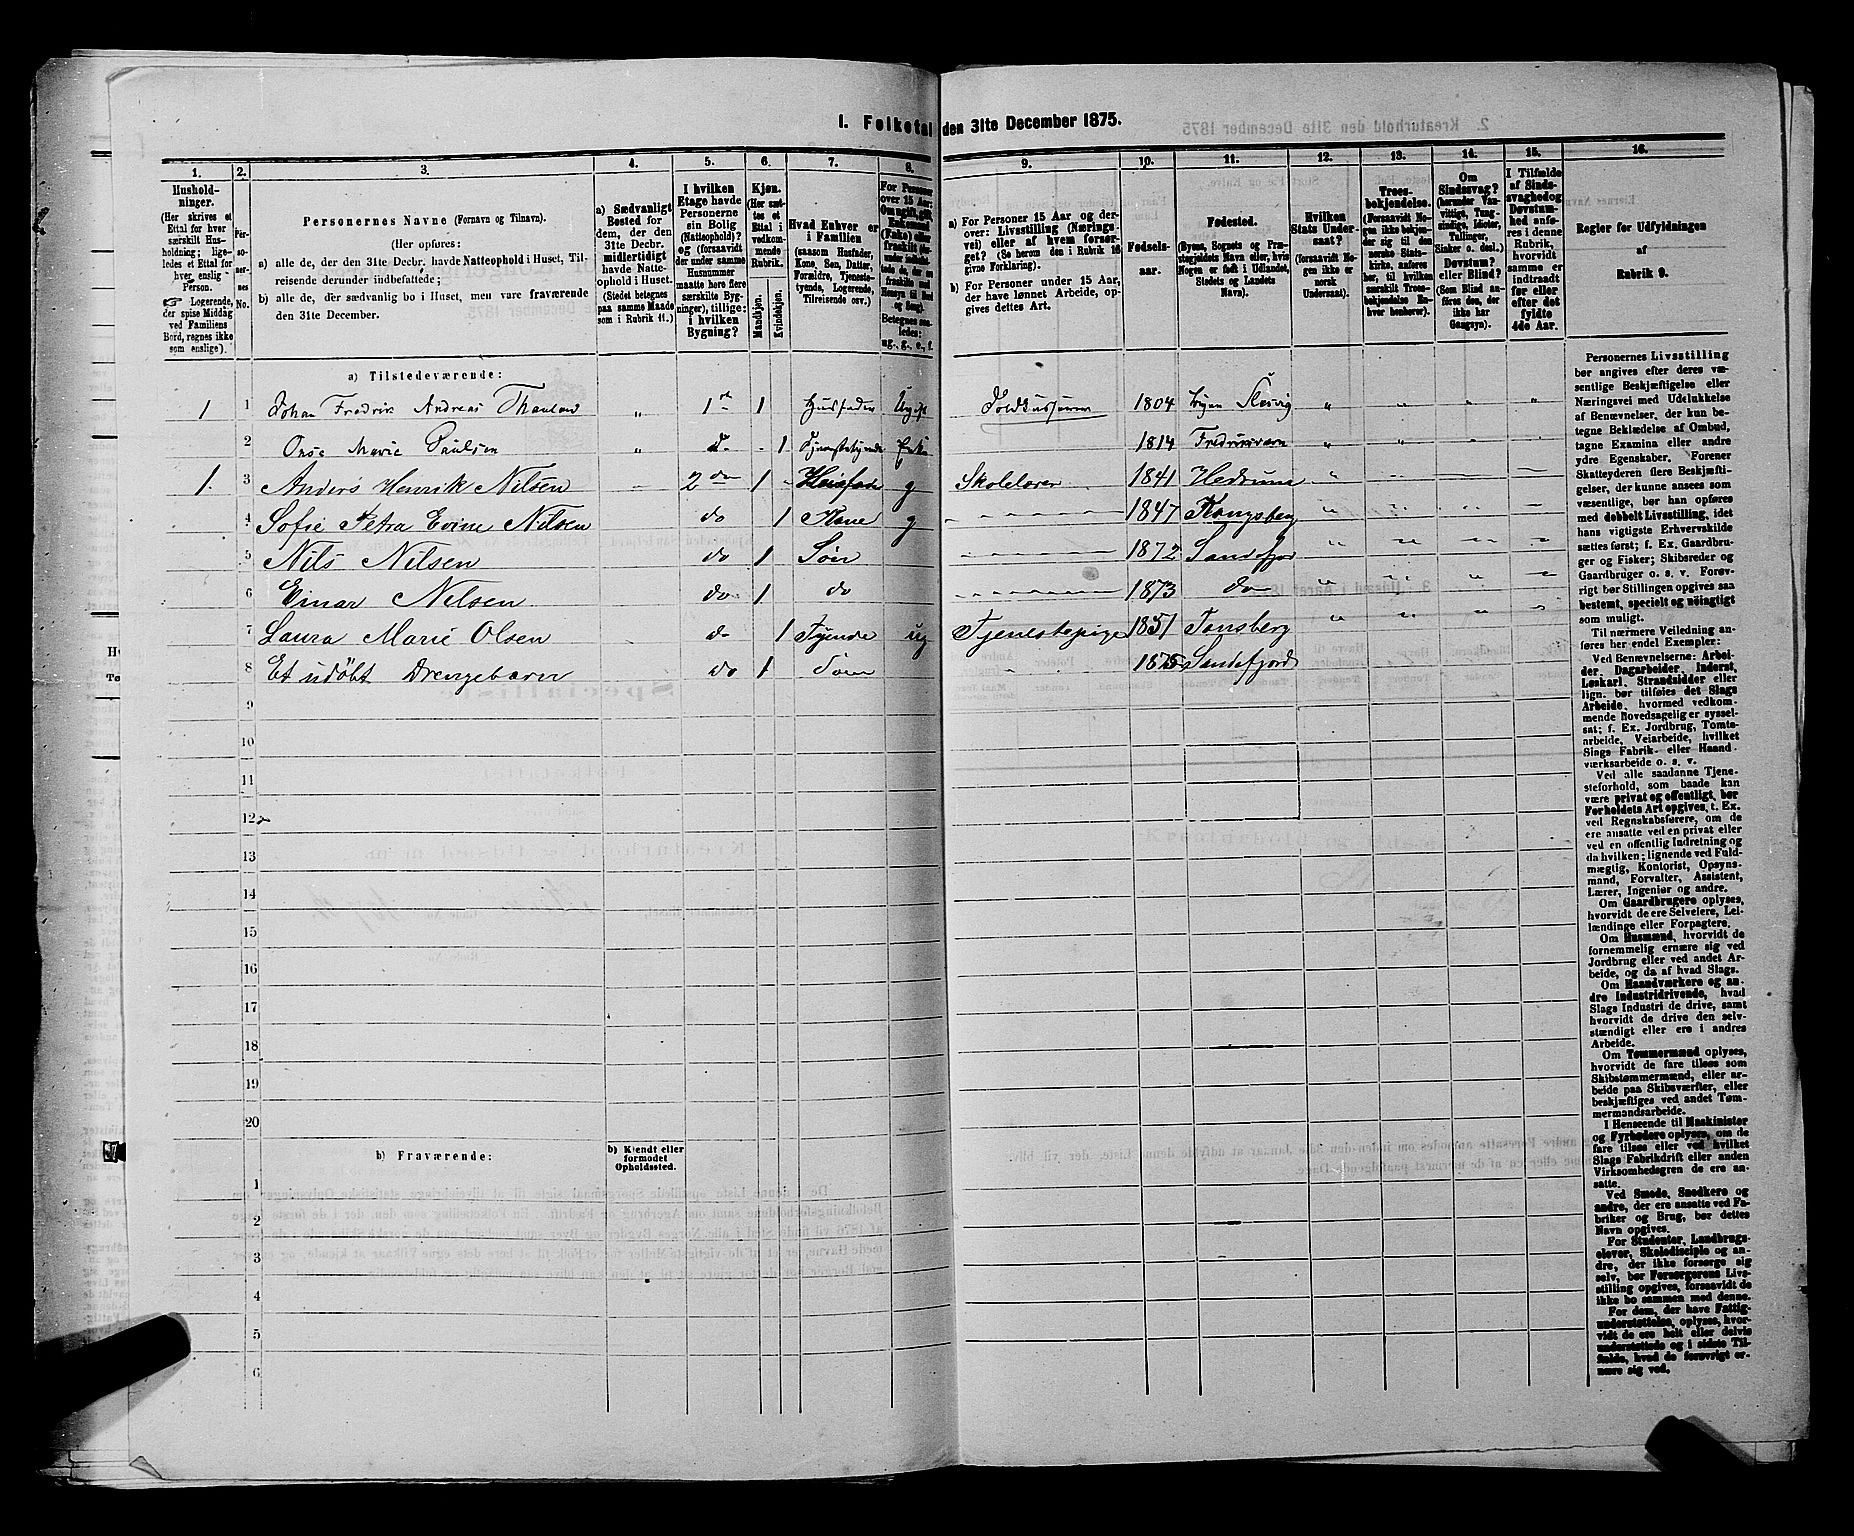 I. Folketal den 31te December 1875.
1. 2. 3. 4. 5. 6. 7. 8. 9. 10. 11. 12. 13. 14. 15. 16.
Hushold-
ninger.
(Her skrives et
Ettal for hver
særskilt Hus-
holdning; lige-
ledes et Ettal for
hver enslig
Person.
☞ Logerende,
der spise Middag
ved Familiens
Bord, regnes ikke
som enslige).
Per-
so-
ner-
nes
No.
Personernes Navne (Fornavn og Tilnavn).
(Her opføres:
a) alle de, der den 31te Decbr. havde Natteophold i Huset, Til-
reisende derunder indbefattede;
b) alle de, der sædvanlig bo i Huset, men vare fraværende
den 31te December.
a) Sædvanligt
Bosted for
dem, der den
31te Decbr.
midlertidigt
havde Natte-
ophold i Huset.
(Stedet betegnes
paa samme Maade
som i Rubrik 11.)
I hvilken
Etage havde
Personerne
sin Bolig
(Natteophold)?
og (forsaavidt
der under samme
Husnummer
maatte høre flere
særskilte Byg-
ninger), tillige:
i hvilken
Bygning?
Kjøn.
(Her sæt-
tes et
Ettal i
vedkom-
mende
Rubrik.
Mandkjøn.
Kvindekjøn.
Hvad Enhver er
i Familien
(saasom Husfader,
Kone, Søn, Datter,
Forældre, Tjeneste-
tyende, Logerende,
Tilreisende osv.)
For Personer
over 15 Aar:
Betegnes saa-
ledes:
ug., g., e., f.
a) For Personer 15 Aar og der-
over: Livsstilling (Nærings-
vei) eller af hvem forsør-
get? (Se herom den i Rubrik 16
givne Forklaring).
b) For Personer under 15 Aar,
der have lønnet Arbeide, op-
gives dettes Art.
Fødsels-
aar.
Fødested.
(Byens, Sognets og Præ-
stegjeldets Navn eller, hvis
Nogen er født i Udlandet,
Stedets og Landets
Navn).
Hvilken
Stats Under-
saat?
(forsaavidt No-
gen ikke er
norsk
Undersaat).
Troes-
bekjendelse.
(Forsaavidt No-
gen ikke bekjen-
der sig til den
norske Stats-
kirke, anføres
her, til hvilken
særskilt Troes-
bekjendelse En-
hver henhører).
Om
Sindssvag?
(herunder Van-
vittige, Tung-
sindige, Idioter,
Tullinger,
Sinker o. desl.)
Døvstum?
eller Blind?
(Som Blind an-
føres den, der
ikke har
Gangsyn).
I Tilfælde
af Sinds-
svaghed og
Døvstum-
hed anfø-
res i denne
Rubrik,
hvorvidt
samme er
indtraadt
før eller
efter det
fyldte
4de Aar.
Regler for Udfyldningen
af
Rubrik 9.
a) Tilstedeværende:
1 1 Johan Fredrik Andreas Thaulow „ 1st 1 Husfader Ugift Toldkasserer 1804 Slesvig „ „ „ „
2 Marie Paulsen „ do 1 Tjenestetyende Enke 1814 Fredriksværn „ „ „ „
1 3 Anders Henrik Nilsen 2 do 1 Husfader g Skolelærer 1841 Hedrum „
4 Sofie Petra Evine Nilsen do 1 Kone g 1847 Kongsberg „ „ „
5 Nils Nilsen do 1 Søn 1872 Sandefjor „ „ „
6 Einar Nilsen do 1 do 1873 do „ „ „
7 Laura Marie Olsen do 1 Tyende ug Tjenestepige 1851 Tønsberg „ „ „
8 Et udøbt Drengebarn do 1 Søn 1875 Sandefjord
9
10
11
12
13
14
15
16
17
18
19
20
b) Fraværende:
b) Kjendt eller
formodet
Opholdssted.
1
2
3
4
5
6
Personernes Livsstilling
bør angives efter deres væ-
sentlige Beskjæftigelse eller
Næringsvei med Udelukkelse
af Benævnelser, der kun be-
tegne Beklædelse af Ombud,
tagne Examina eller andre
ydre Egenskaber. Forener
Skatteyderen flere Beskjæfti-
gelser, der kunne ansees som
væsentlige, bør han opføres
med dobbelt Livsstilling, idet
hans vigtigste Erhvervskilde
sættes først; f. Ex. Gaardbru-
ger og Fisker; Skibsreder og
Gaardbruger o. s. v. Forøv-
rigt bør Stillingen opgives saa
bestemt, specielt og nøiagtigt
som muligt.
Til nærmere Veiledning an-
føres her endel Exempler:
Ved Benævnelserne: Arbei-
der, Dagarbeider, Inderst,
Løskarl, Strandsidder eller
lign. bør tilføies det Slags
Arbeide, hvormed vedkom-
mende hovedsagelig er syssel-
sat; f. Ex. Jordbrug, Tomte-
arbeide, Veiarbeide, hvilket
Slags Fabrik- eller Haand-
værksarbeide o. s. v.
Ved alle saadanne Tjene-
steforhold, som baade kan
være privat og offentligt, bør
Forholdets Art opgives, t. Ex.
ved Regnskabsførere, om de
ere ansatte ved en privat eller
ved en offentlig Indretning og
da hvilken; lignende ved Fuld-
mægtig, Kontorist, Opsyns-
mand, Forvalter, Assistent,
Lærer, Ingeniør og andre.
Om Gaardbrugere oplyses,
hvorvidt de ere Selveiere, Lei-
lændinge eller Forpagtere.
Om Husmænd, hvorvidt de
fornemmelig ernære sig ved
Jordbrug eller ved andet Ar-
beide, og da af hvad Slags.
Om Haandværkere og an-
dre Industridrivende, hvad
Slags Industri de drive, samt
hvorvidt de drive den selv-
stændigt eller ere i andres
Arbeide.
Om Tømmermænd oplyses,
hvorvidt de fare tilsøs som
Skibstømmermænd, eller ar-
beide paa Skibsværfter, eller
beskjæftiges ved andet Tøm-
mermandsarbeide.
I Henseende til Maskinister
og Fyrbødere oplyses, om de
fare tilsøs eller ved hvilket
Slags Fabrikdrift eller anden
Virksomhedsgren de ere an-
satte.
Ved Smede, Snedkere og
andre, der ere ansatte ved Fa-
briker og Brug, bør dettes
Navn opgives.
For Studenter, Landbrugs-
elever, Skoledisciple og an-
dre, der ikke forsørge sig
selv, bør Forsørgerens Livs-
stilling opgives, forsaavidt de
ikke bo sammen med denne.
For dem, der have Fattig-
understøttelse, oplyses, hvor-
vidt de ere helt eller delvis
understøttede og i sidste Til-
fælde, hvad de forøvrigt er-
nære sig ved.